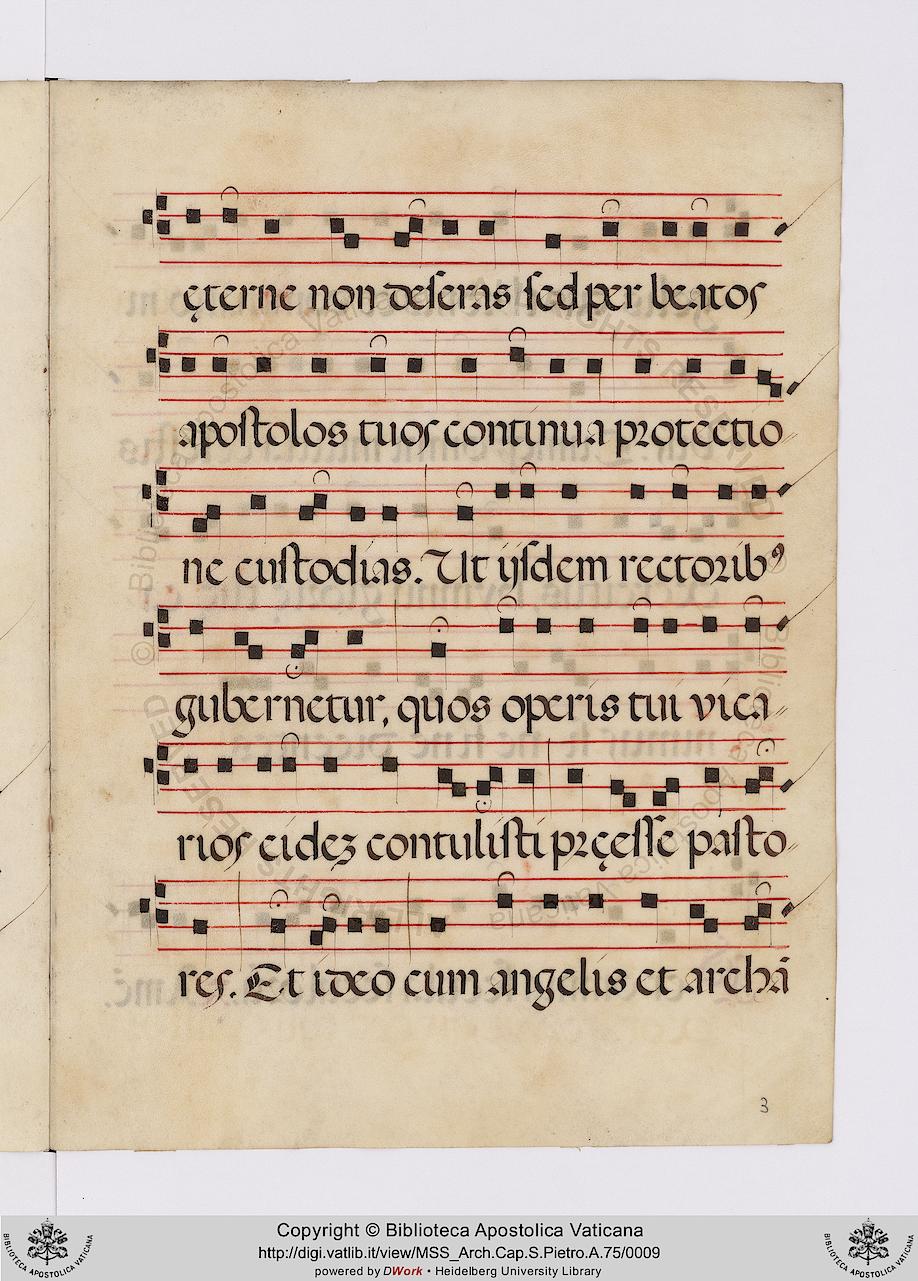 ęterne non deseras sed per beatos
apostolos tuos continua protectio
ne custodias. Ut ijsdem rectorib⁹
gubernetur, quos operis tui vica
rios eidez contulisti pręesse pasto
res. Et ideo cum angelis et archā
3
Copyright © Biblioteca Apostolica Vaticana
http://digi.vatlib.it/view/MSS_Arch.Cap.S.Pietro.A.75/0009
powered by DWork • Heidelberg University Library